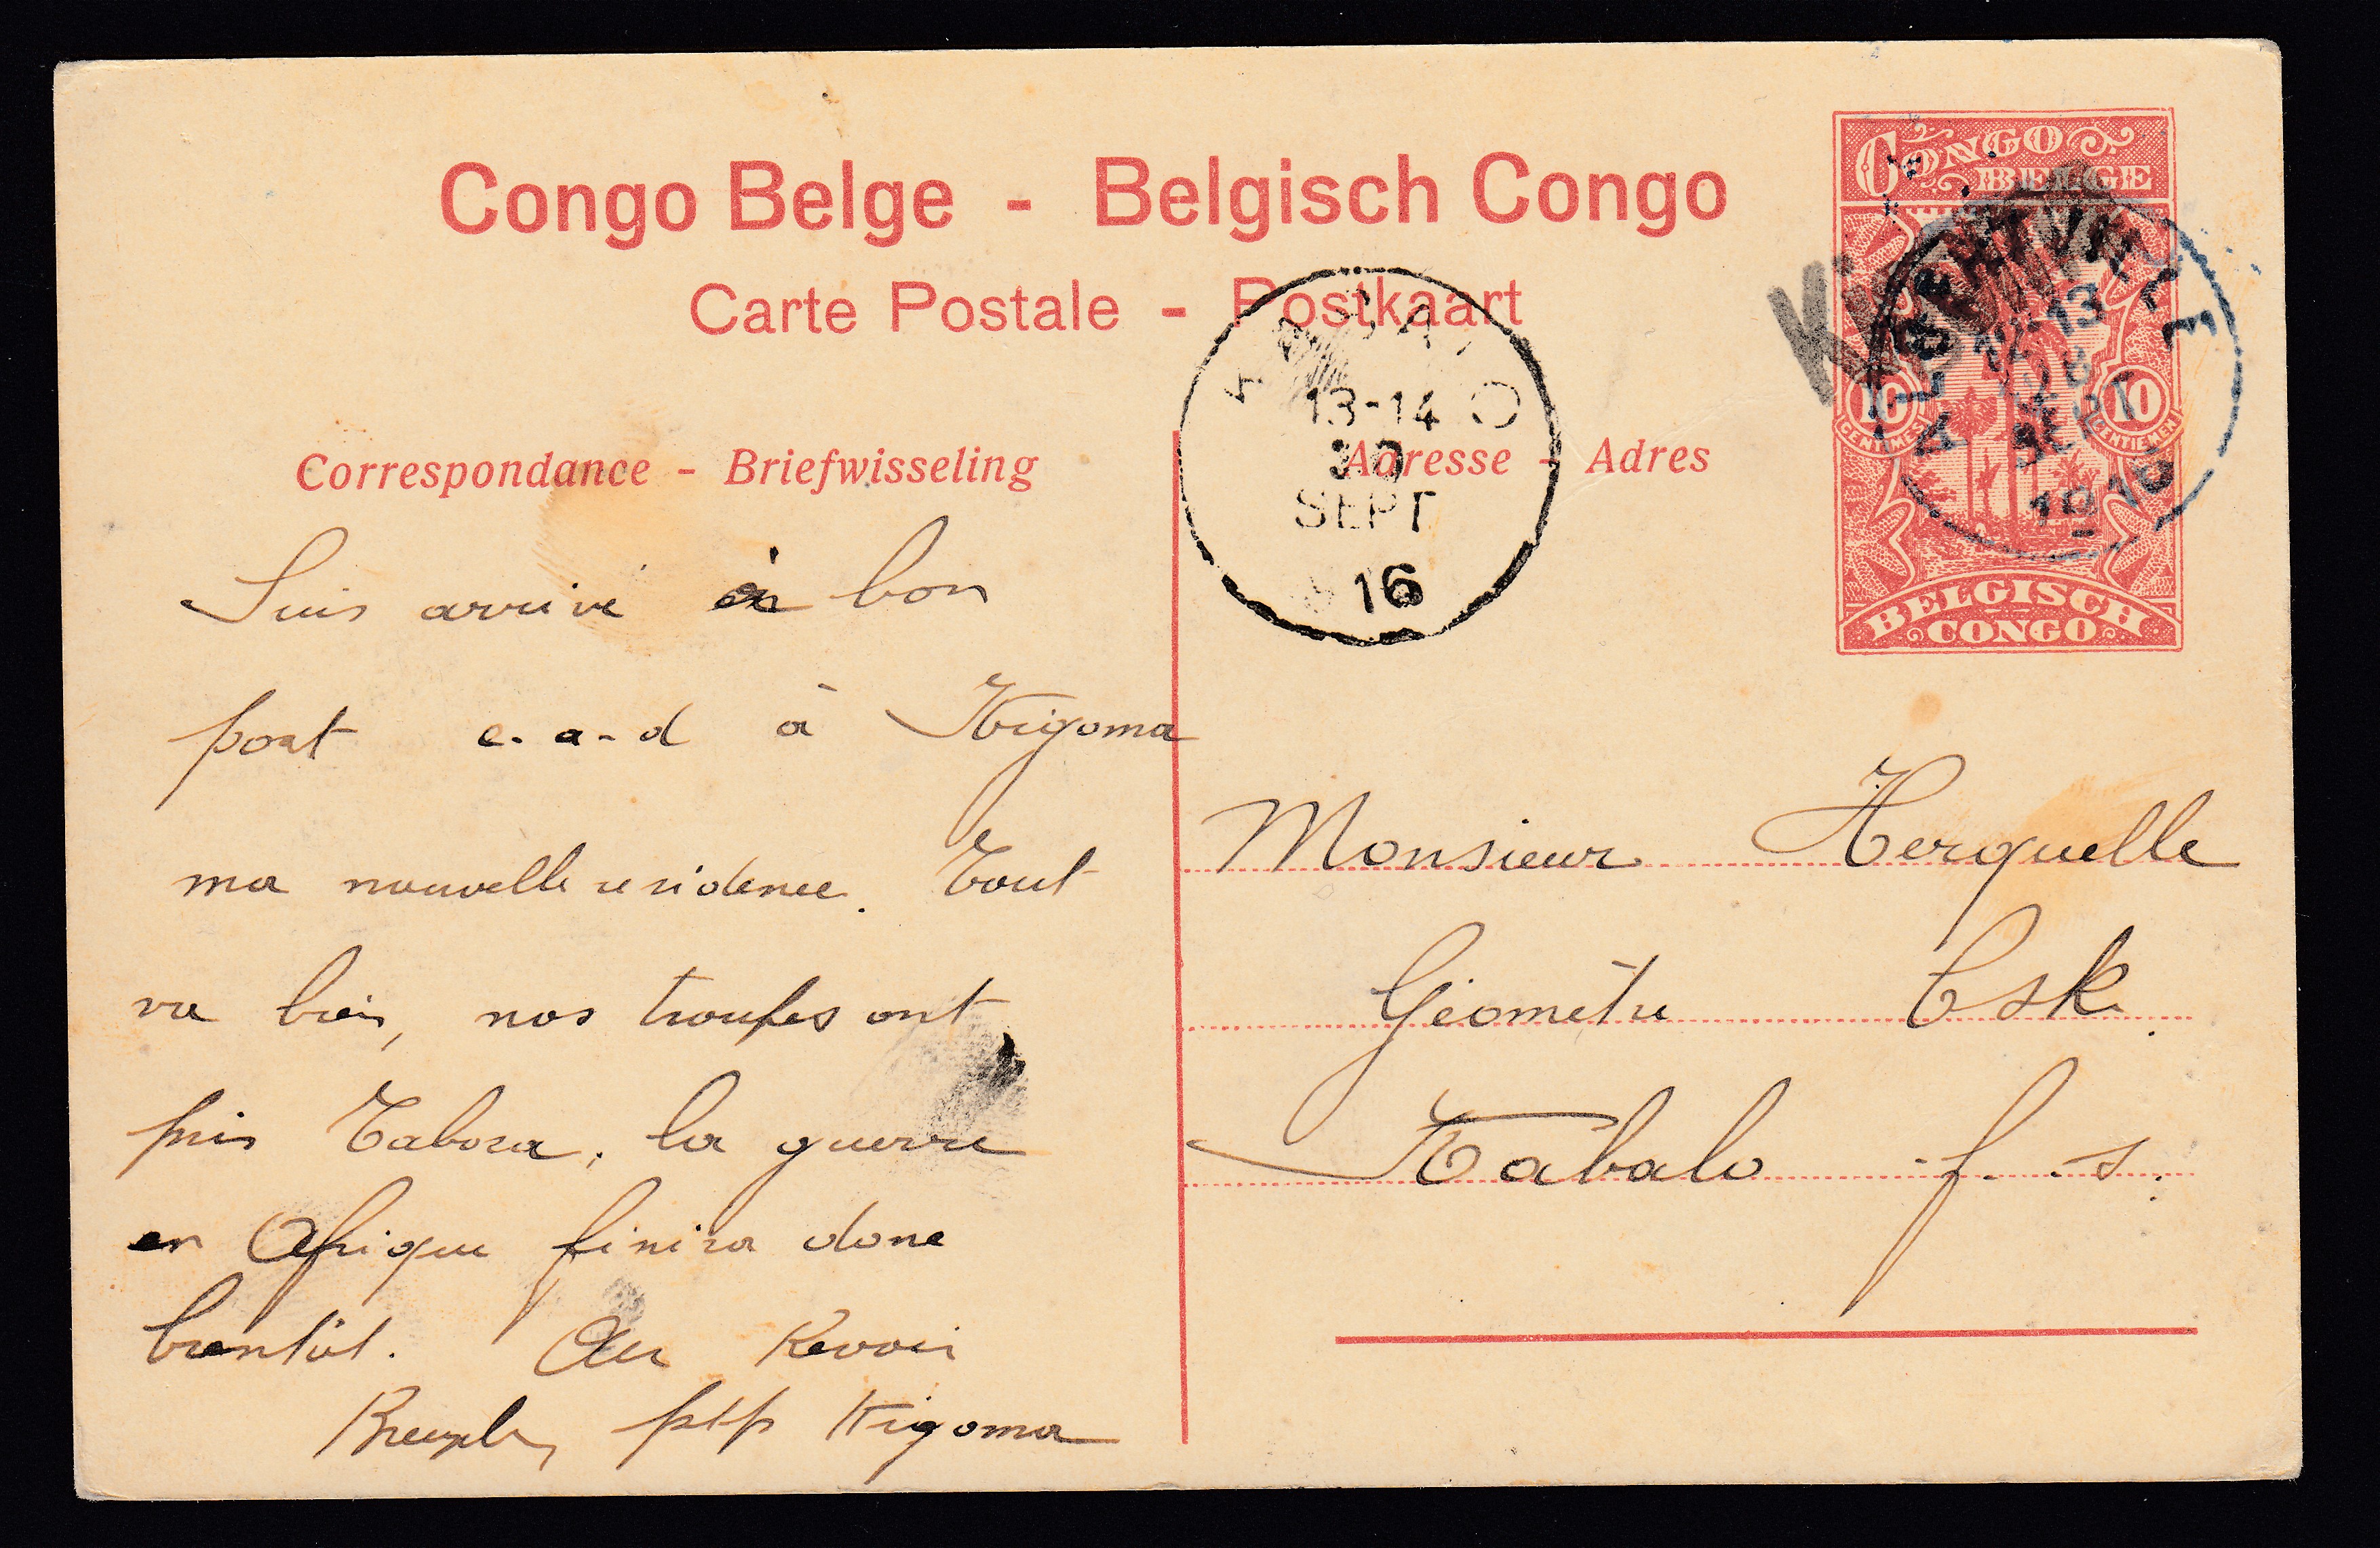 Congo Belge - Belgisch Congo
Carte Postale - Postkaart
Correspondance - Briefwisseling
Adresse - Adres
CONGO
BELGE
10
CENTIMES
10
CENTIEMEN
BELGISCH
CONGO
ALBERTVILLE
12-13
SEPT
1916
KABALO
13-14
30
SEPT
16
Suis arrivé à bon
port c.-a-d à Kigoma
ma nouvelle residence. Tout
va bien, nos troupes ont
pris Tabora, la guerre
en Afrique finira donc
bientôt. Au Revoir
ptp Kigoma
Monsieur Herquelle
Géomètre CSK.
Kabalo f. s.